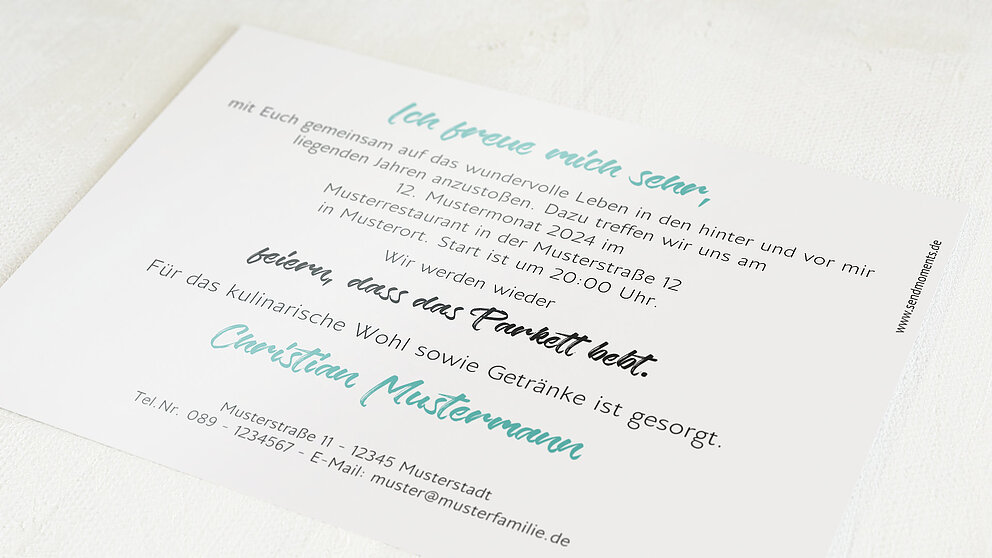 Ich freue mich sehr,
mit Euch gemeinsam auf das wundervolle Leben in den hinter und vor mir
liegenden Jahren anzustoßen. Dazu treffen wir uns am
12. Mustermonat 2024 im
Musterrestaurant in der Musterstraße 12
in Musterort. Start ist um 20:00 Uhr.
Wir werden wieder
feiern, dass das Parkett bebt.
Für das kulinarische Wohl sowie Getränke ist gesorgt.
Christian Mustermann
Musterstraße 11 - 12345 Musterstadt
Tel.Nr. 089 - 1234567 - E-Mail: muster@musterfamilie.de
www.sendmoments.de